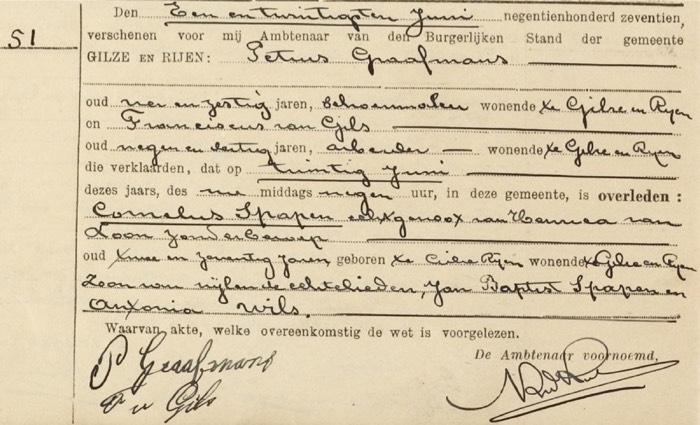 51
Den Een en twintigsten Juni negentienhonderd zeventien,
verschenen voor mij Ambtenaar van den Burgerlijken Stand der gemeente
GILZE EN RIJEN: Petrus Graafmans
oud vier en zestig jaren, schoenmaker wonende te Gilze en Rijen
en Franciscus van Gils
oud negen en dertig jaren, arbeider wonende te Gilze en Rijen
die verklaarden, dat op twintig Juni
dezes jaars, des na middags negen uur, in deze gemeente, is overleden:
Cornelus Spapen echtgenoot van Hannea van
Loon zonder beroep
oud twee en zeventig jaren, geboren te Gilze Rijen wonende te Gilze en Rijen
Zoon van wijlen de echtelieden, Jan Baptist Spapen en
Antonia Wils.
Waarvan akte, welke overeenkomstig de wet is voorgelezen.
De Ambtenaar voornoemd,
P Graafmans
F v Gils